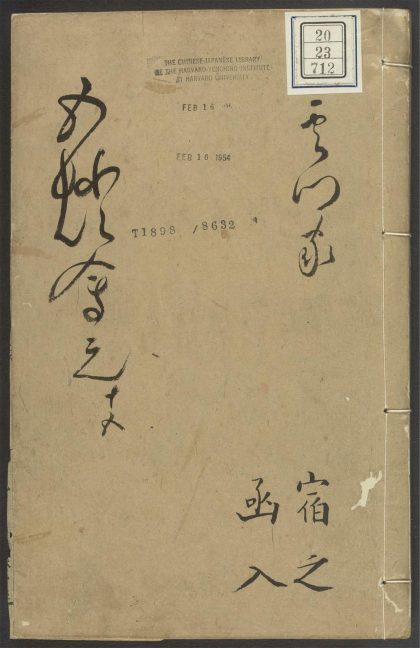 20
23
712
THE CHINESE-JAPANESE LIBRARY
OF THE HARVARD-YENCHING INSTITUTE
AT HARVARD UNIVERSITY
FEB 16
FEB 16 1954
T1898 /8632
雲門家
五燈會元 十五
宿之
函入